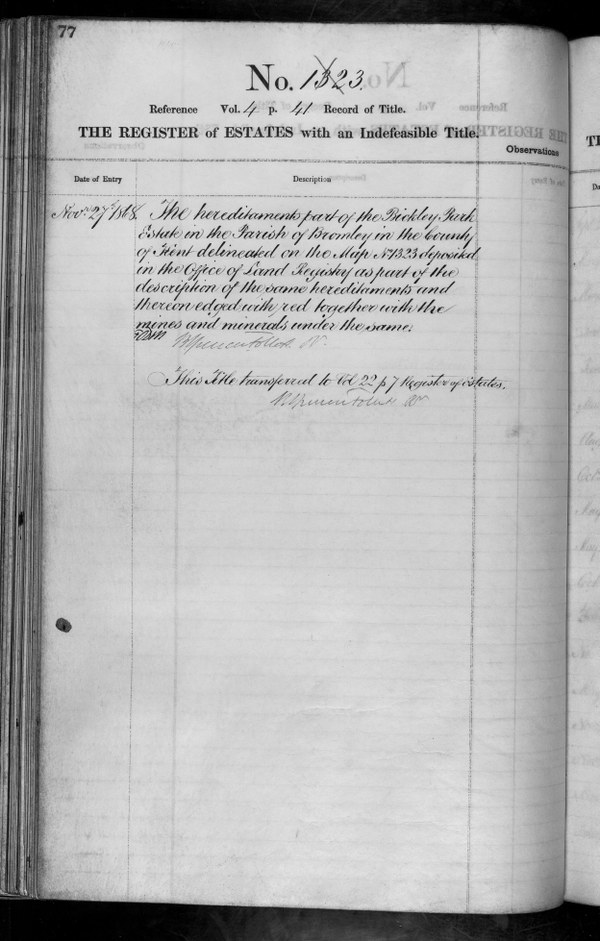 77
No. 1323.
Reference Vol. 4 p. 41 Record of Title.
THE REGISTER of ESTATES with an Indefeasible Title.
Observations
Date of Entry
Description
Novr. 27th 1868. The hereditaments part of the Bickley Park
Estate in the Parish of Bromley in the County
of Kent delineated on the Map No 1323 deposited
in the Office of Land Registry as part of the
description of the same hereditaments and
thereon edged with red together with the
mines and minerals under the same.
This Title transferred to Vol 22 p 7 Register of Estates.